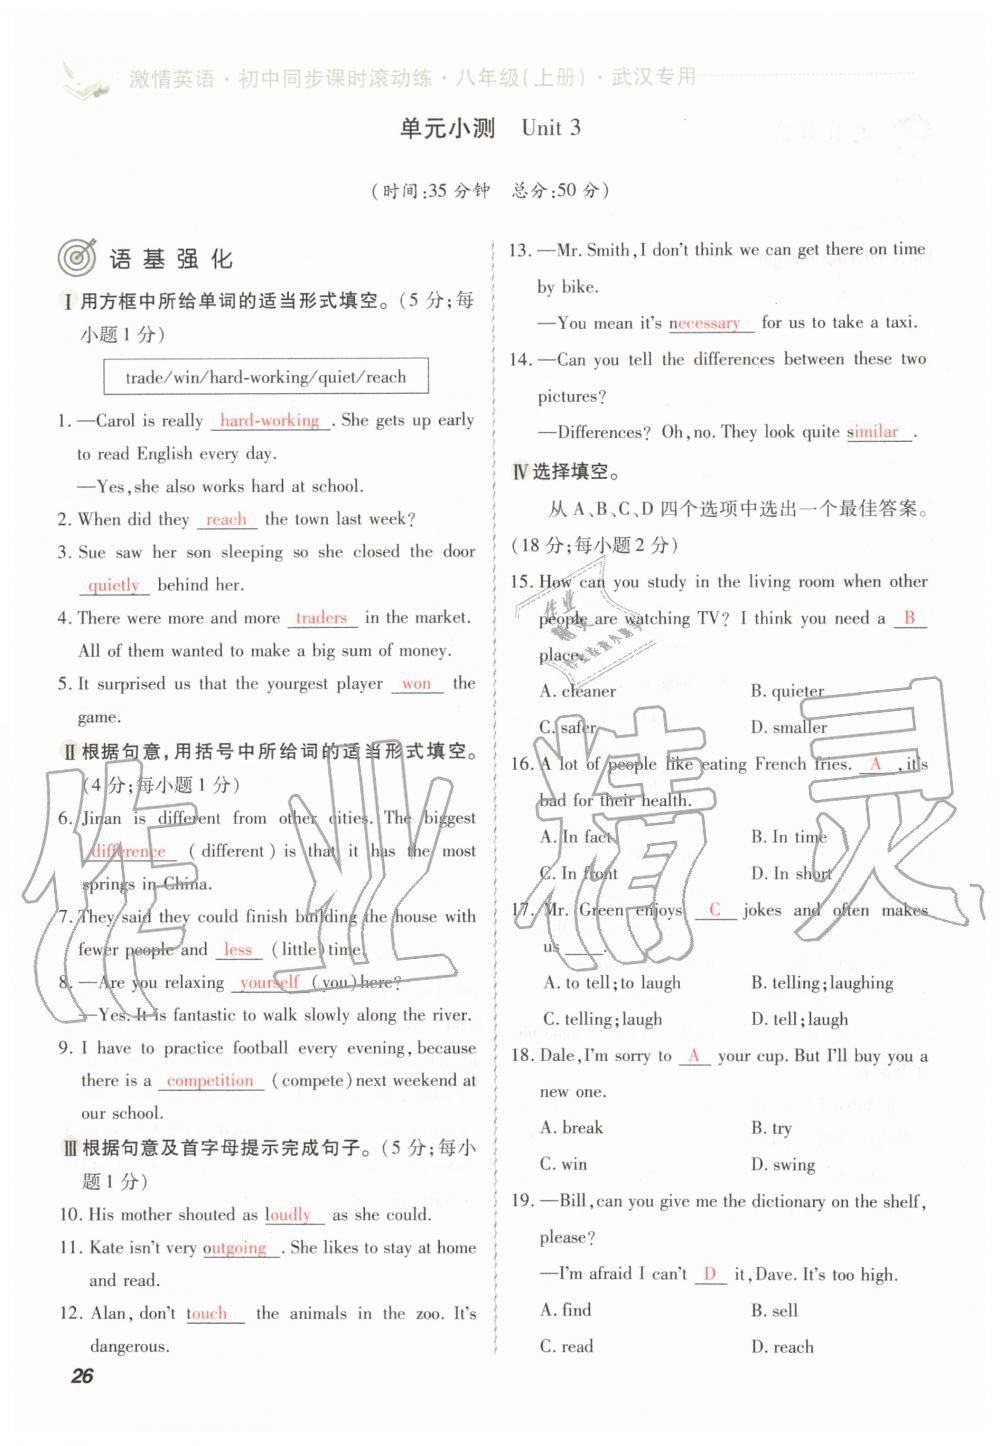 激情英语·初中同步课时滚动练·八年级(上册)·武汉专用
单元小测 Unit 3
(时间:35分钟 总分:50分)
语基强化
Ⅰ 用方框中所给单词的适当形式填空。(5分;每
小题1分)
trade/win/hard-working/quiet/reach
1. —Carol is really hard-working. She gets up early
to read English every day.
—Yes, she also works hard at school.
2. When did they reach the town last week?
3. Sue saw her son sleeping so she closed the door
quietly behind her.
4. There were more and more traders in the market.
All of them wanted to make a big sum of money.
5. It surprised us that the yourgest player won the
game.
Ⅱ 根据句意,用括号中所给词的适当形式填空。
(4分;每小题1分)
6. Jinan is different from other cities. The biggest
difference (different) is that it has the most
springs in China.
7. They said they could finish building the house with
fewer people and less (little) time.
8. —Are you relaxing yourself (you) here?
—Yes. It is fantastic to walk slowly along the river.
9. I have to practice football every evening, because
there is a competition (compete) next weekend at
our school.
Ⅲ 根据句意及首字母提示完成句子。(5分;每小
题1分)
10. His mother shouted as loudly as she could.
11. Kate isn't very outgoing. She likes to stay at home
and read.
12. Alan, don't touch the animals in the zoo. It's
dangerous.
26
13. —Mr. Smith, I don't think we can get there on time
by bike.
—You mean it's necessary for us to take a taxi.
14. —Can you tell the differences between these two
pictures?
—Differences? Oh, no. They look quite similar.
Ⅳ 选择填空。
从A、B、C、D四个选项中选出一个最佳答案。
(18分;每小题2分)
15. How can you study in the living room when other
people are watching TV? I think you need a B
place.
A. cleaner B. quieter
C. safer D. smaller
16. A lot of people like eating French fries. A, it's
bad for their health.
A. In fact B. In time
C. In front D. In short
17. Mr. Green enjoys C jokes and often makes
us ____.
A. to tell; to laugh B. telling; laughing
C. telling; laugh D. tell; laugh
18. Dale, I'm sorry to A your cup. But I'll buy you a
new one.
A. break B. try
C. win D. swing
19. —Bill, can you give me the dictionary on the shelf,
please?
—I'm afraid I can't D it, Dave. It's too high.
A. find B. sell
C. read D. reach
作业精灵